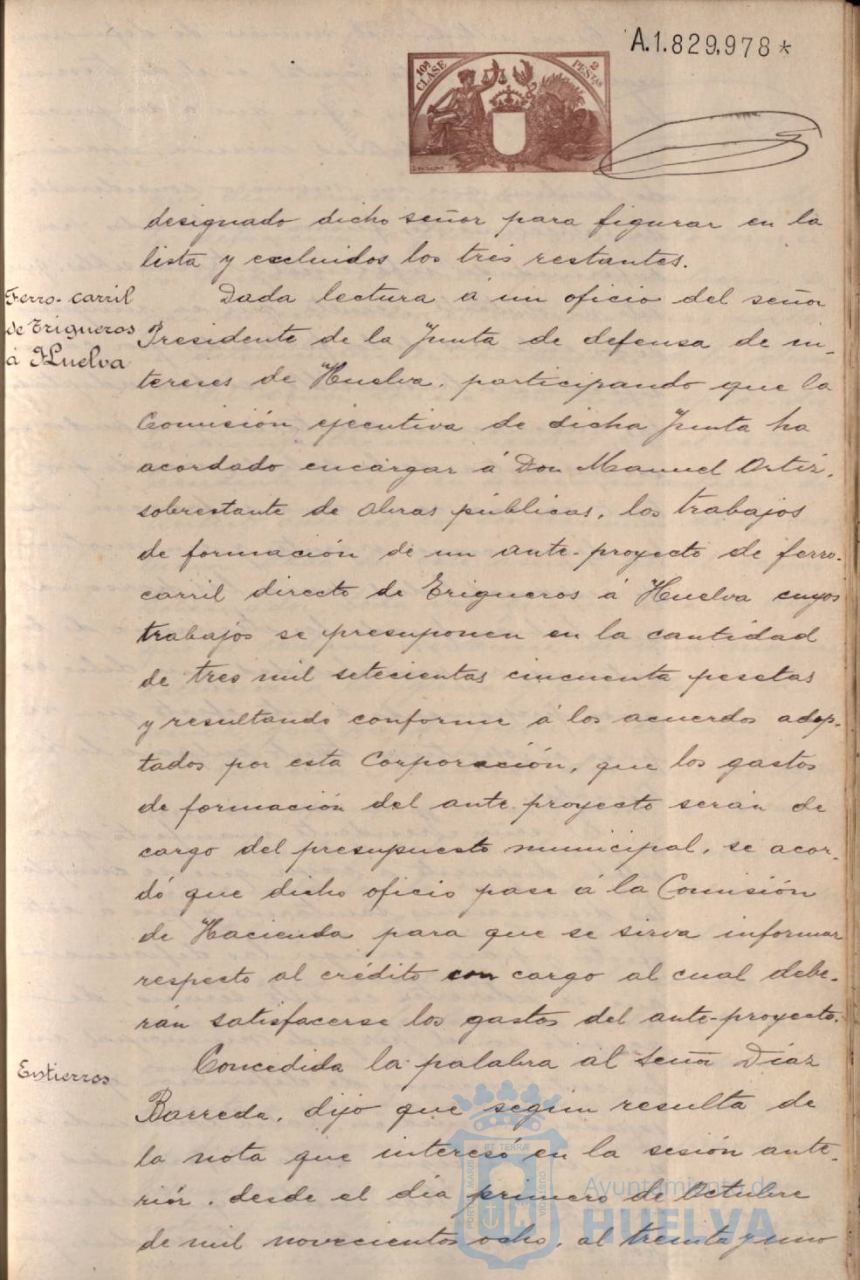 A.1.829,978*
10ª CLASE
2 PESTAS
designado dicho señor para figurar en la
lista y excluidos los tres restantes.
Ferro-carril
de Trigueros
á Huelva
Dada lectura á un oficio del señor
Presidente de la Junta de defensa de in-
tereses de Huelva, participando que la
Comisión ejecutiva de dicha Junta ha
acordado encargar á Don Manuel Ortiz,
sobrestante de obras públicas, los trabajos
de formación de un ante-proyecto de ferro-
carril directo de Trigueros á Huelva cuyos
trabajos se presuponen en la cantidad
de tres mil setecientas cincuenta pesetas
y resultando conforme á los acuerdos adop-
tados por esta Corporación, que los gastos
de formación del ante-proyecto serán de
cargo del presupuesto municipal, se acor-
dó que dicho oficio pase á la Comisión
de Hacienda para que se sirva informar
respecto al crédito con cargo al cual debe-
rán satisfacerse los gastos del ante-proyecto.
Entierros
Concedida la palabra al señor Díaz
Barreda, dijo que según resulta de
la nota que interesó en la sesión ante-
riór, desde el día primero de Octubre
de mil novecientos ocho, al treinta y uno
Ayuntamiento de
HUELVA